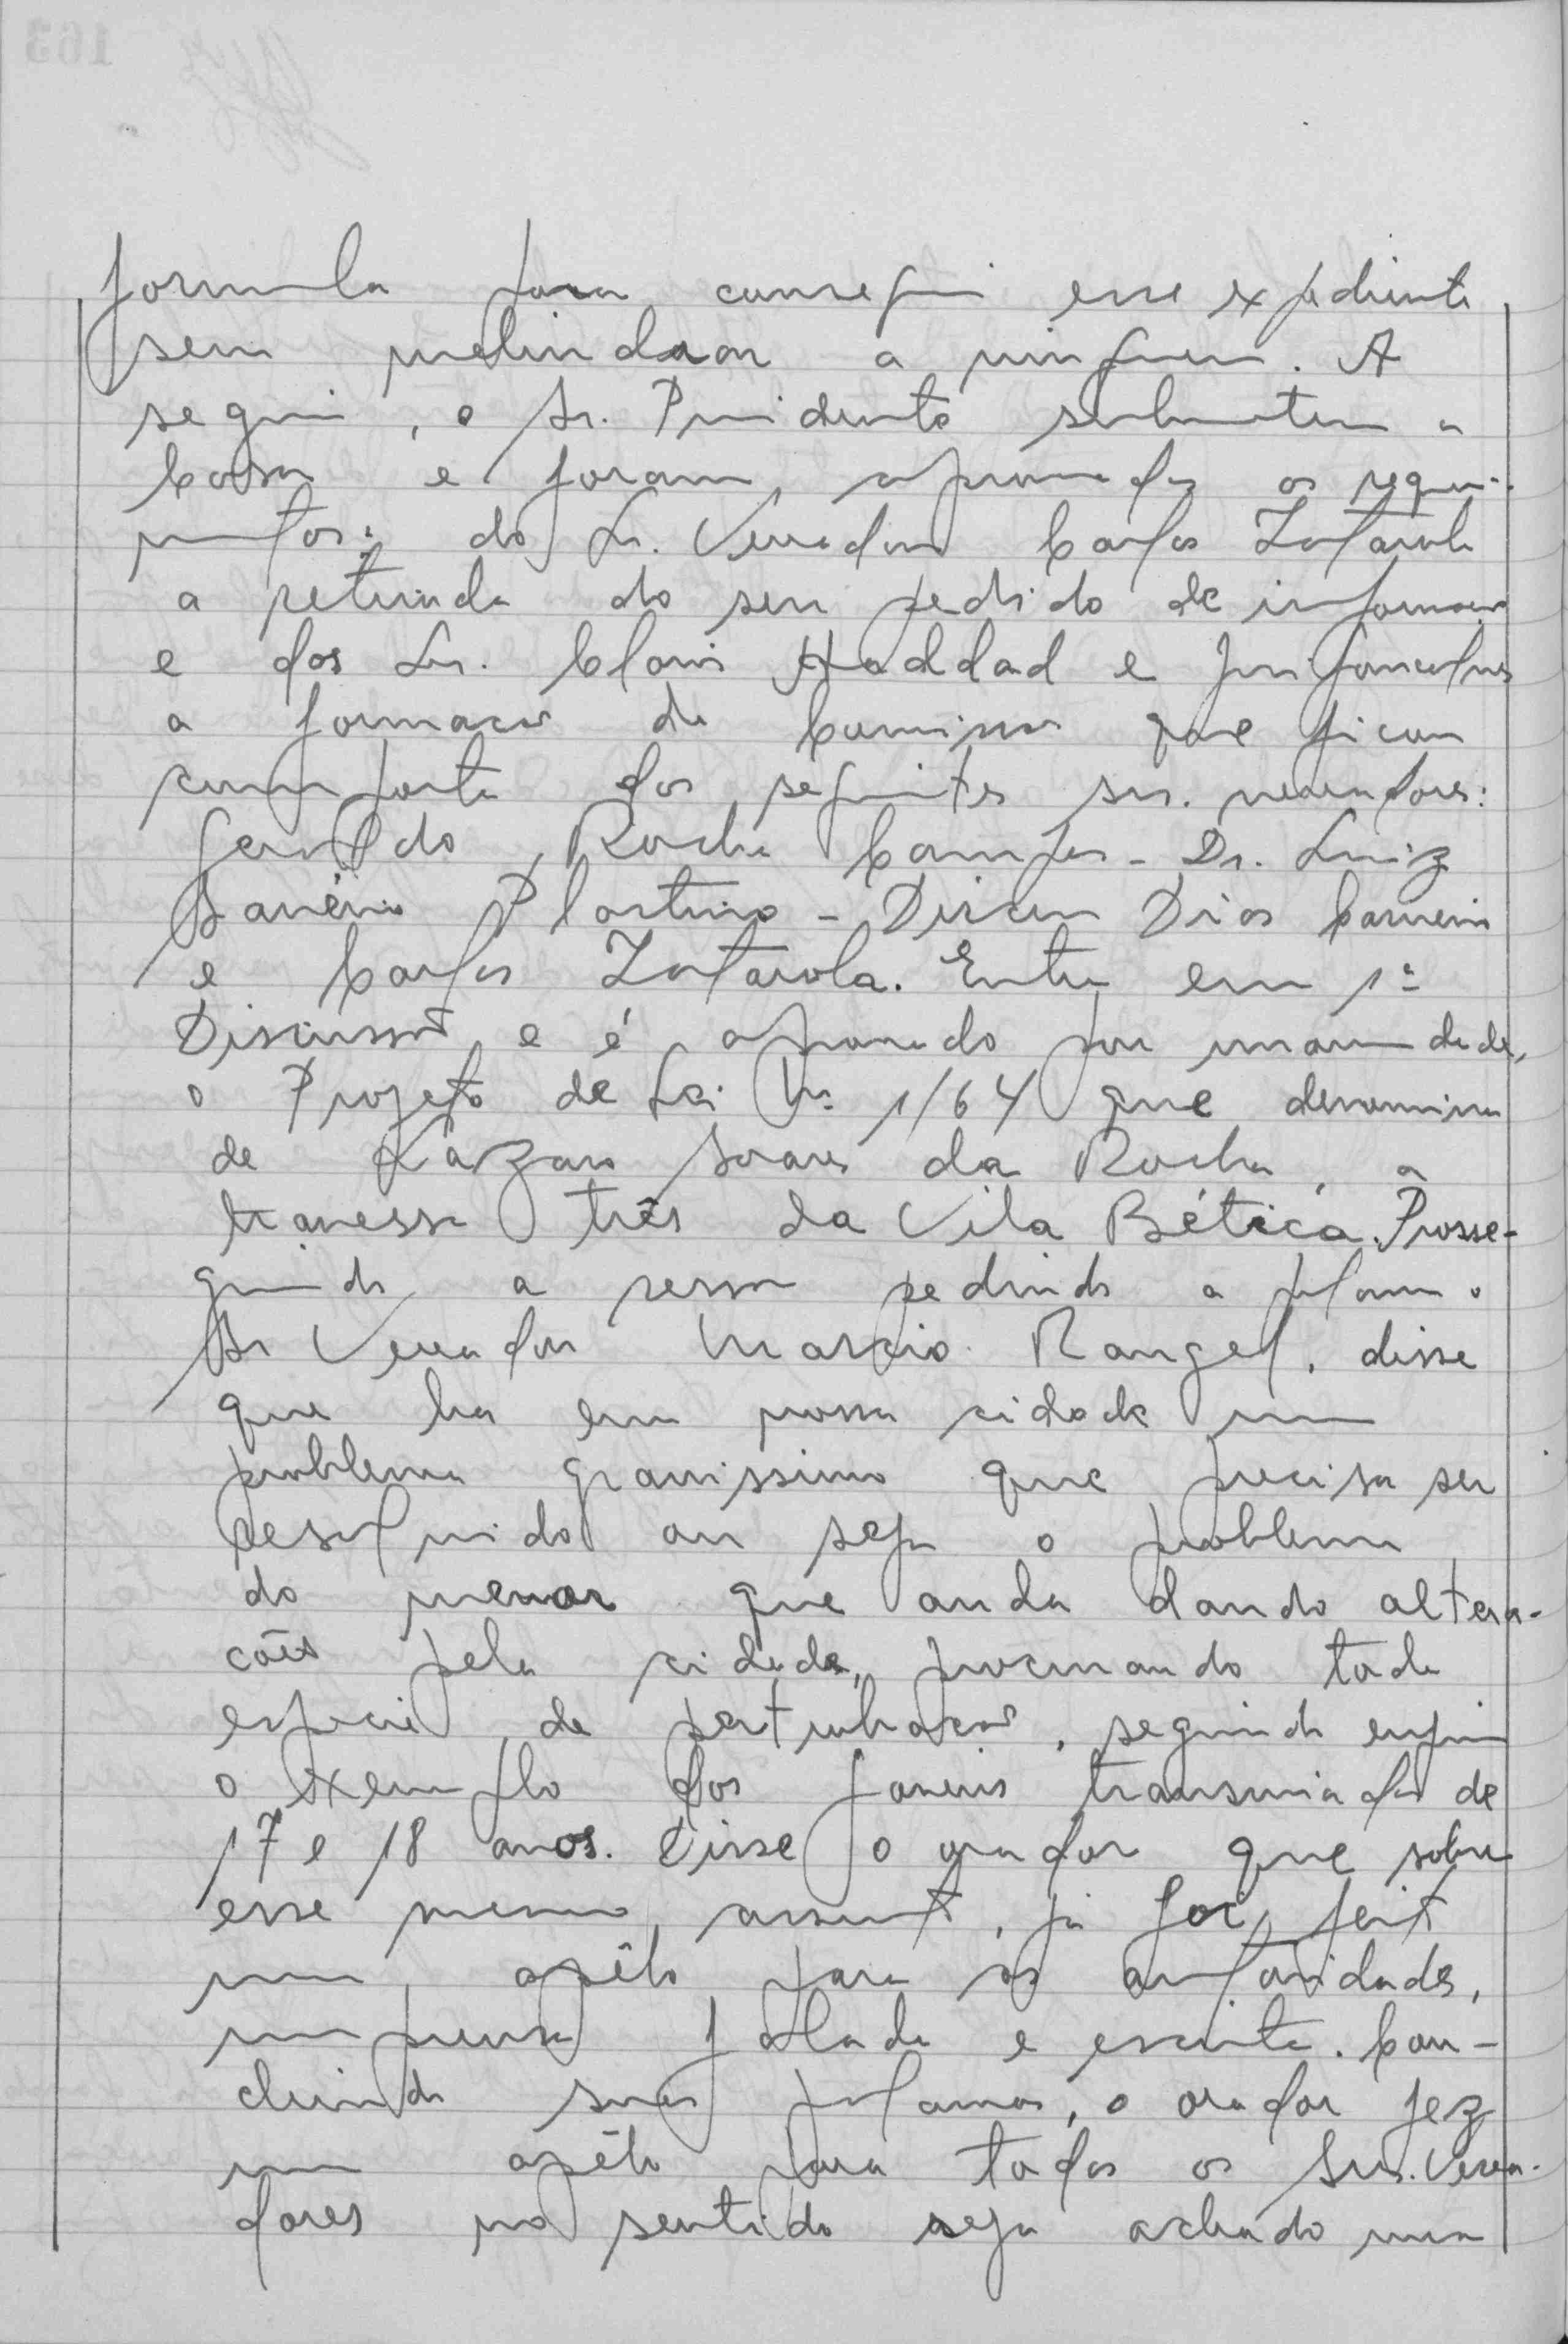 formula para consegui esse expediente
sem melindrar a ninguem. A
segui, o Sr. Presidente submeteu a
Casa e foram aprovados os requeri-
mentos: do Sr. Vereador Carlos Zatarola
a retirada do seu pedido de informação
e dos Srs. Clovis Haddad e
a formação da Comissão que ficou
composta dos seguintes srs. vereadores:
Geraldo Rocha Campos - Dr. Luiz
Savério Plastino - Dirceu Dias Carneiro
e Carlos Zatarola. Entra em 1ª
Discussão e é aprovado por unanimidade,
o Projeto de Lei Nº 1/64 que denomina
de Lázaro Soares da Rocha, a
travessa três da Vila Bética. Prosse-
guindo a sessão pedindo a palavra o
Sr Vereador Marcio Rangel, disse
que ha em nossa cidade um
problema gravissimo que precisa ser
resolvido ou seja o problema
do menor que anda dando altera-
cões pela cidade, procurando toda
especie de perturbação, seguindo enfim
o exemplo dos joveins transviados de
17 e 18 anos. Disse o orador que sobre
esse mesmo assunto, já foi feito
um apêlo para as autoridades,
imprensa falada e escrita. Con-
cluindo suas palavras, o orador fez
um apêlo para todos os Srs. Verea-
dores no sentido seja achado uma